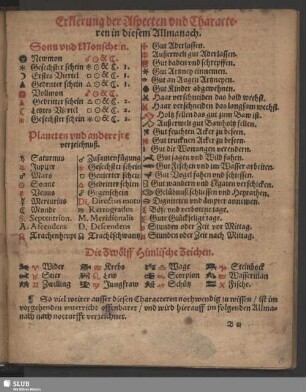 Erklerung der Aspecten vnd Characte-
ren in diesem Allmanach.
Sonn vnd Monschein.
Newmon
Gesechster schein
Erstes Viertel
Gedritter schein
Volmon
Gedritter schein
Letzes Viertel
Gesechster schein
Planeten vnd andere jre
verzeichnuß.
♄ Saturnus
♃ Jupiter
♂ Mars
☉ Sonne
♀ Venus
☿ Mercurius
☾ Monde
S. Septentrion.
A. Ascendens
☊ Trachenheupt
Zusamenfügung
Gesechster schein
Gevierter schein
Gedritter schein
Gegenschein
Di: Directus motus
Retrogradus
M. Meridionalis
D. Descendens
☋ Trachschwantz
Gut Aderlassen.
Außerwelt gut Aderlassen.
Gut baden vnd schrepffen.
Gut Artzney einnemen.
Gut an Augen Artzneyen.
Gut Kinder abgewehnen.
Haar verschneiden das bald wechst.
Haar verschneiden das langsam wechst.
Holtz fellen das gut zum Baw ist.
Außerwelt gut Bawholtz fellen.
Gut feuchten Acker zu bessern.
Gut trucknen Acker zu bessern.
Gut die Wonungen verendern.
Gut jagen vnd Wild fahen.
Gut Fischen vnd im Wasser arbeiten.
Gut Vogel fahen vnd schiessen.
Gut wandern vnd Legaten verschicken.
Gut Kauffschliessen vnd Heyrathen.
Digniteten vnd ämpter annemen.
Böse vnd verworffne tage.
Gute Glückselige tage.
Stunden oder Zeit vor Mittag.
Stunden oder Zeit nach Mittag.
Die Zwölff Himlische Zeichen.
♈ Wider ♋ Krebs ♎ Wage ♑ Steinbock
♉ Stier ♌ Lew ♏ Scorpion ♒ Wasserman
♊ Zwilling ♍ Jungfraw ♐ Schütz ♓ Fische.
¶ So viel weiter ausser diesen Characteren nothwendig zu wissen / ist im
vorgehenden vnterricht offenbaret / vnd wird hierauff im folgenden Allma-
nach nach notturfft verzeichnet.